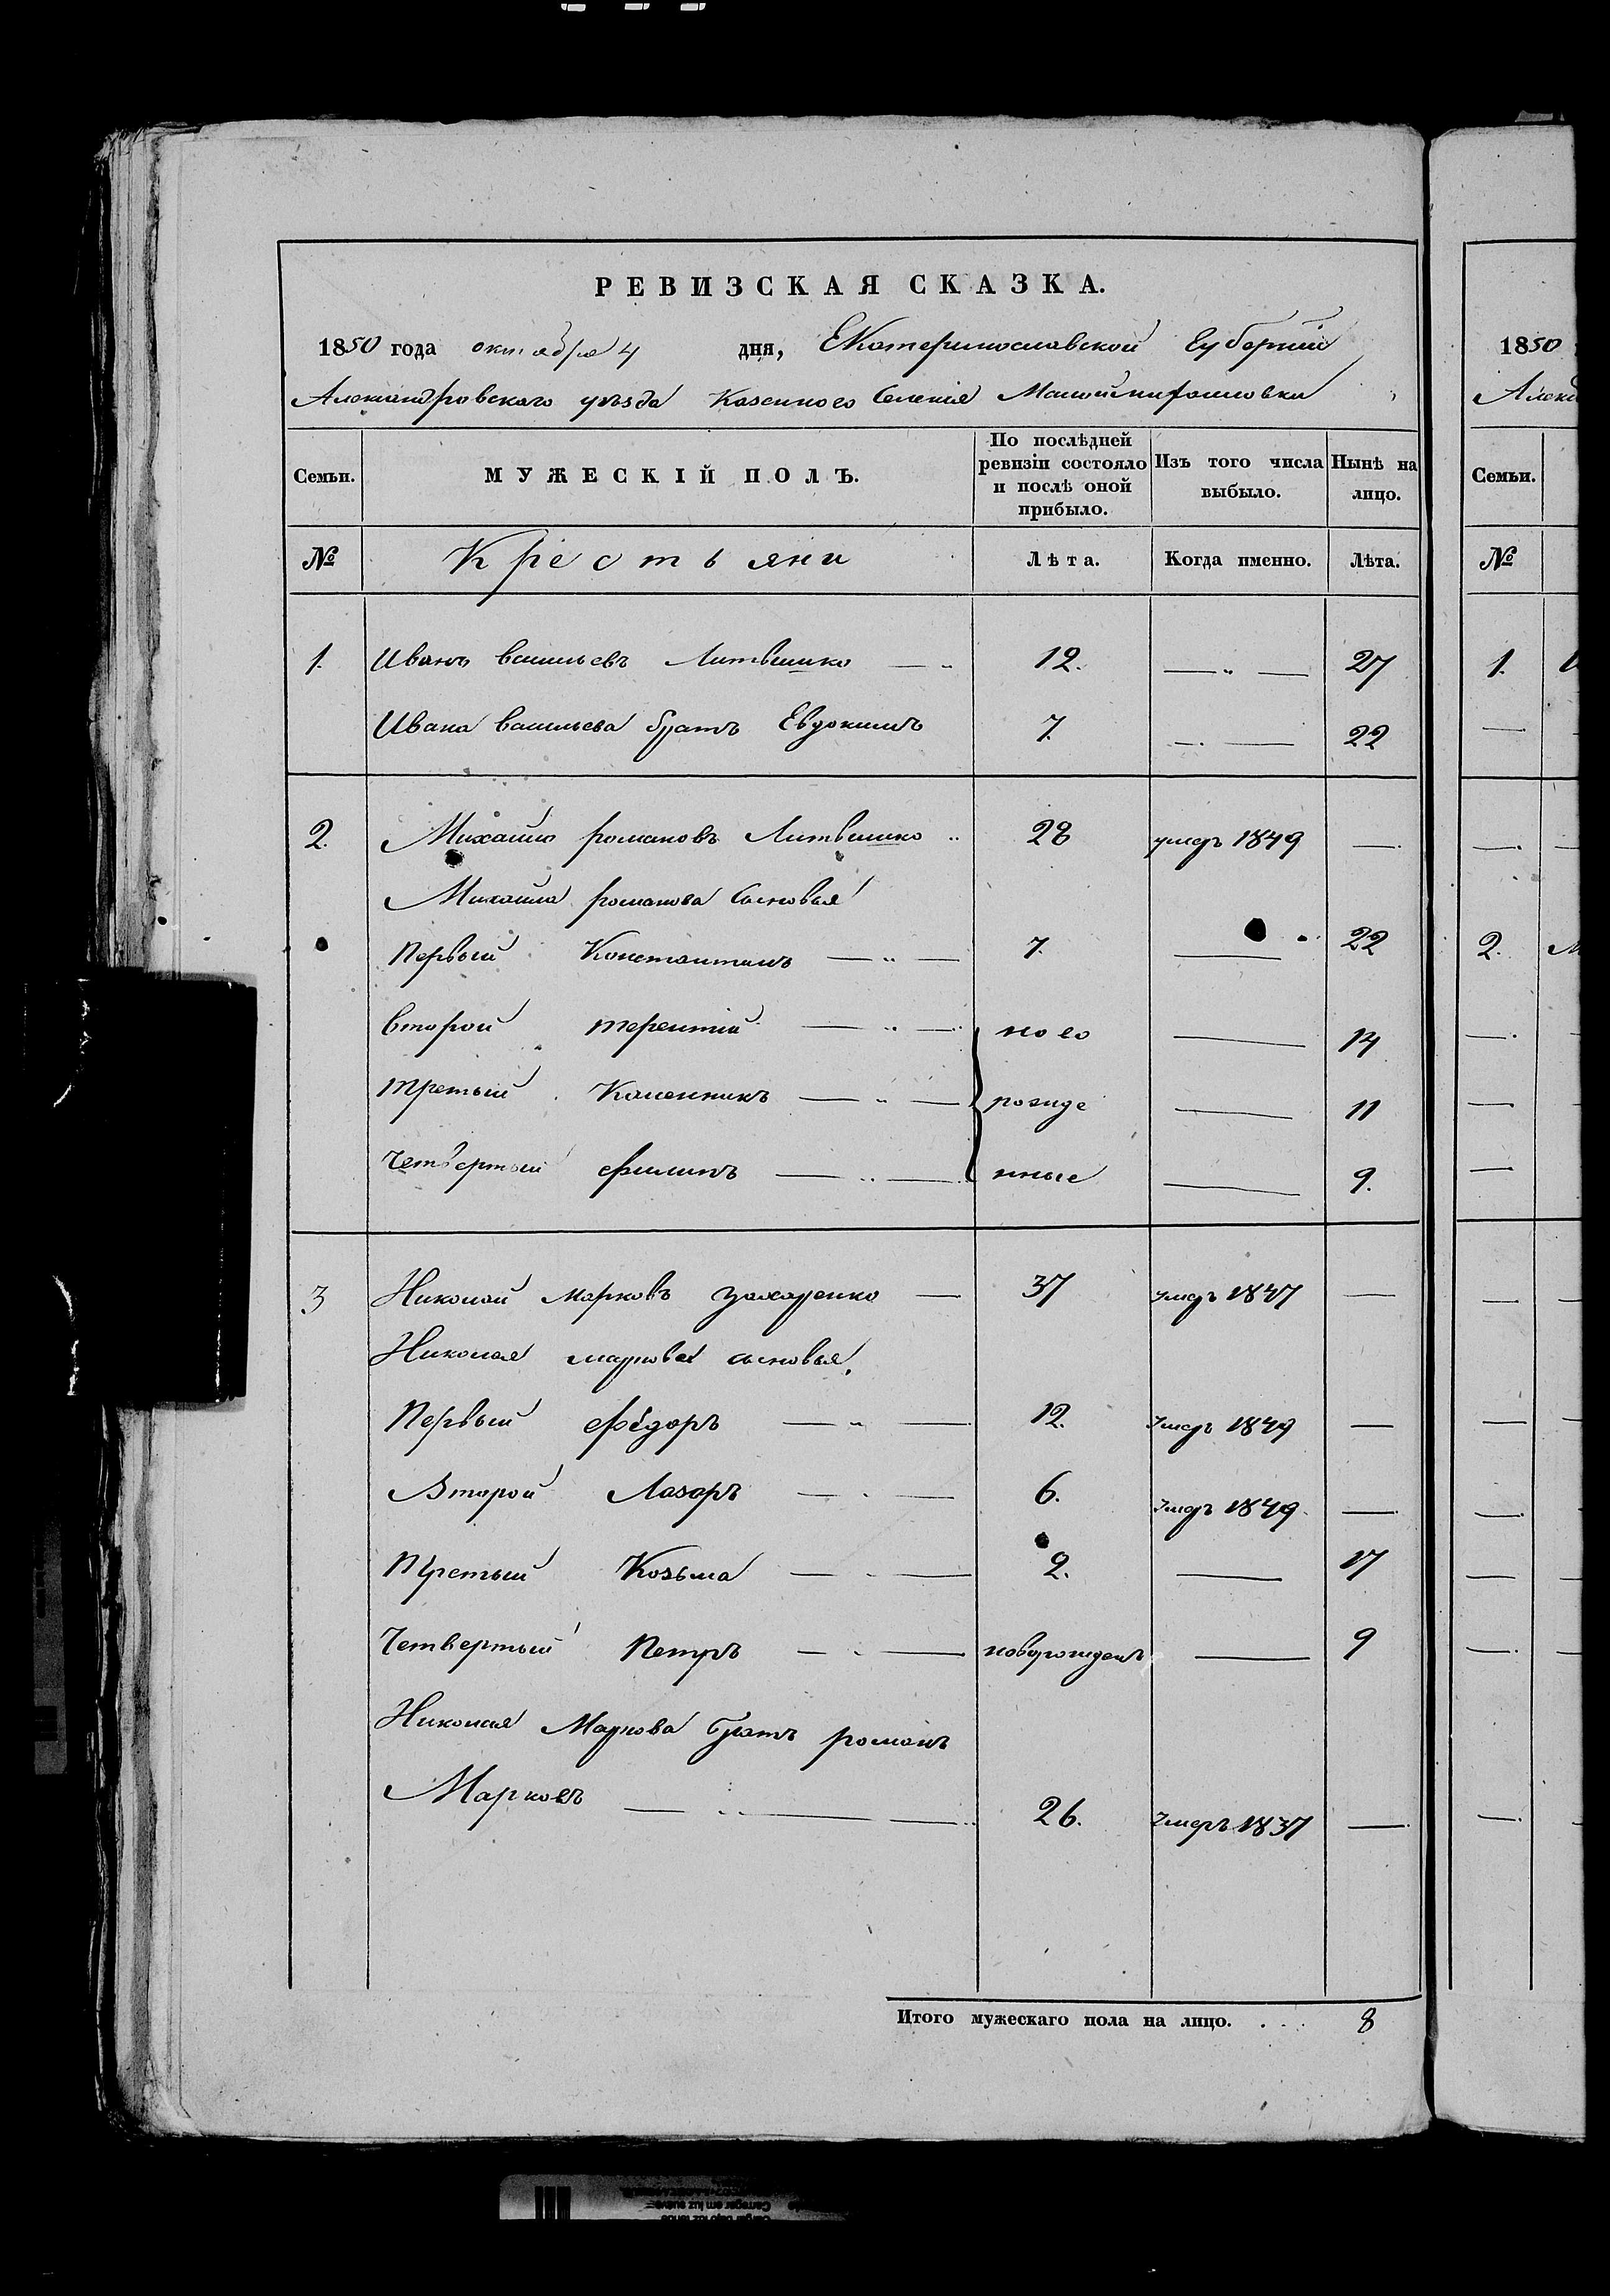 РЕВИЗСКАЯ СКАЗКА.
1850 года октября 4 дня, Екатеринославской Губернии
Александровского уезда Казенного Селения
Семьи. МУЖЕСКІЙ ПОЛЪ. По послѣдней ревизіи состояло и послѣ оной прибыло. Изъ того числа выбыло. Нынѣ на лицо.
№ Крестьяни Лѣта. Когда именно. Лѣта.
1. Иванъ васильевъ Литвинко 12. 27
Ивана васильева братъ Евдокимъ 7. 22
2. Михайло романовъ Литвинко 28 умеръ 1849
Михайла романова Сыновья
Первый Константинъ 7. 22
второй терентій ново 14
третьий Каленникъ рожде 11
Четвертый филипъ нные 9.
3 Николай марковъ захаренко 37 умеръ 1847
Николая маркова сыновья,
Первый федоръ 12. умеръ 1849
Второй Лазаръ 6. умеръ 1849
Третьий Козьма 2. 17
Четвертый Петръ новорожденъ 9
Николая Маркова братъ романъ
Марковъ 26. Умеръ 1837
Итого мужескаго пола на лицо. . . . 8
1850
Алекс
Семьи.
№
1.
2.